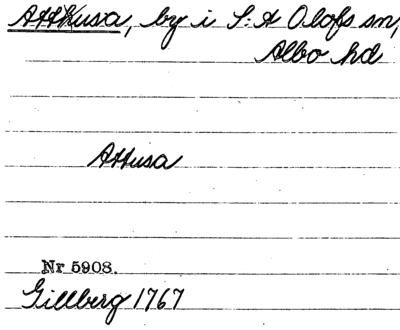 Attusa, by i S:t Olofs sn,
Albo hd
Attusa
Nr 5908.
Gillberg 1767